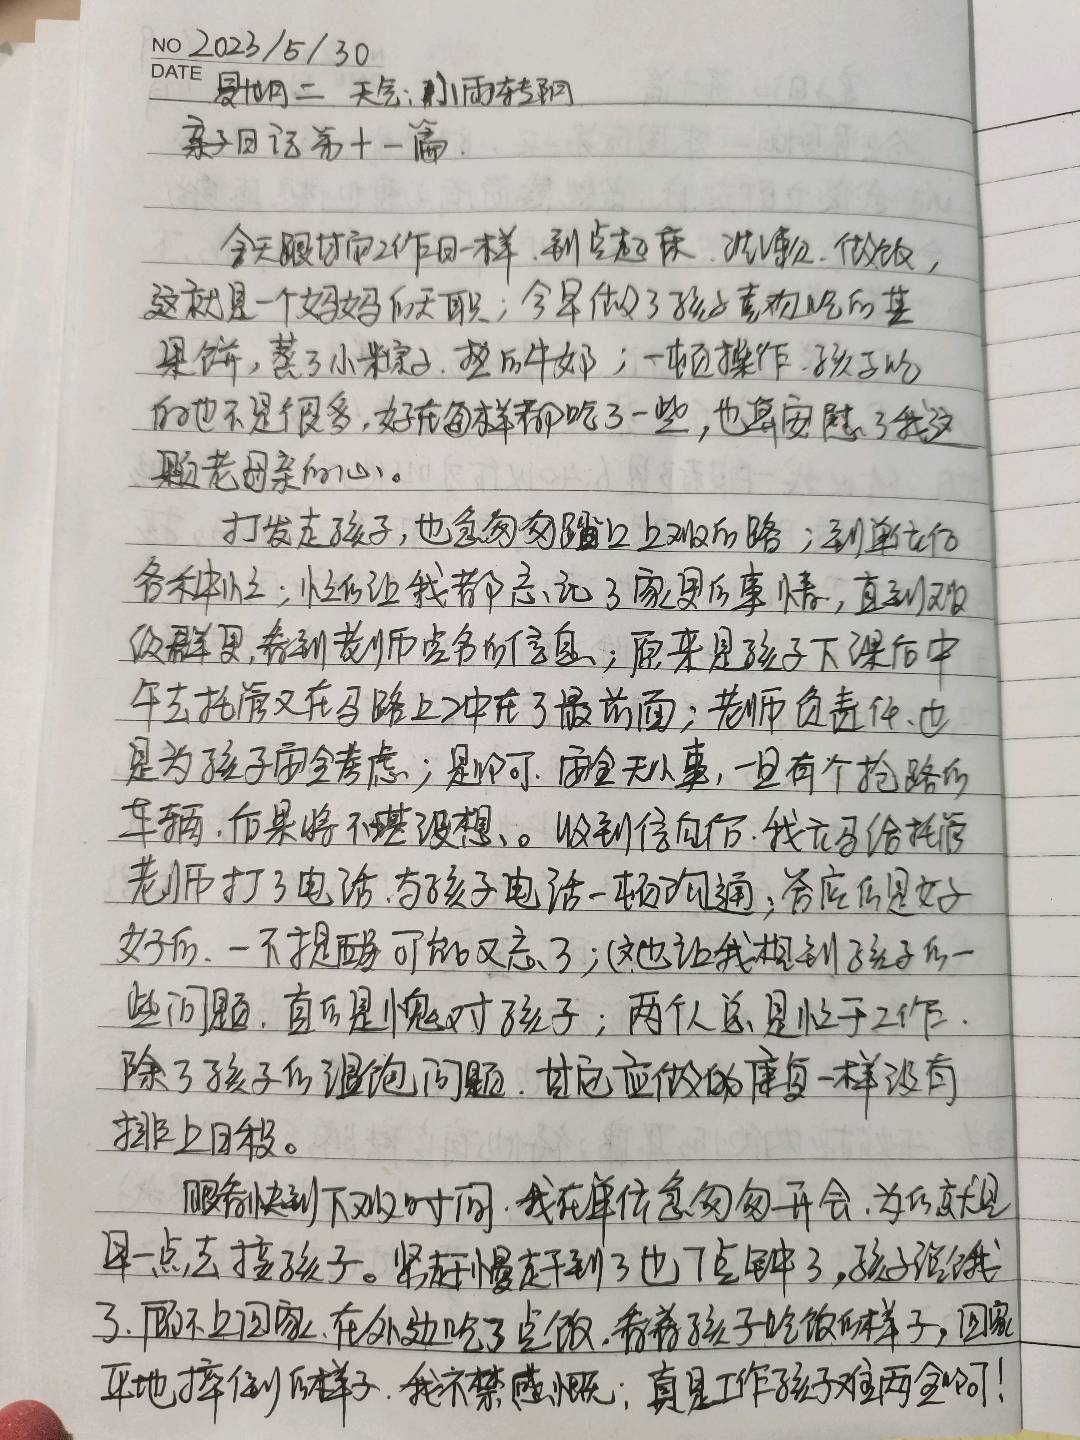 NO 2023/5/30
DATE 星期二 天气:小雨转阴
亲子日记第十一篇.
今天跟其它工作日一样.到点起床.洗漱.做饭,
这就是一个妈妈的天职;今早做了孩子喜欢吃的苹
果饼,蒸了小米粽子.热的牛奶;一顿操作.孩子吃
的也不是很多,好在每样都吃了一些,也算安慰了我这
颗老母亲的心。
打发走孩子,也急匆匆踏上上班的路;到单位后
各种忙;忙的让我都忘记了家里的事情,直到班
级群里,看到老师点名的信息;原来是孩子下课后中
午去托管又在马路上冲在了最前面;老师负责任、也
是为孩子安全考虑;是呵.安全无小事,一旦有个抢路的
车辆.后果将不堪设想、。收到信息后.我立马给托管
老师打了电话.与孩子电话一顿沟通;答应的是好
好的.一不提醒可能又忘了;这也让我想到孩子的一
些问题.真的是愧对孩子;两个人总是忙于工作.
除了孩子的温饱问题.其它应做的康复一样没有
排上日程。
眼看快到下班时间.我在单位急匆匆开会.为的就是
早一点去接孩子。紧赶慢赶到了也7点钟了,孩子饿
了.顾不上回家.在外边吃了点饭.看着孩子吃饭的样子,回家
平地摔倒的样子.我不禁感慨;真是工作孩子难两全呵!